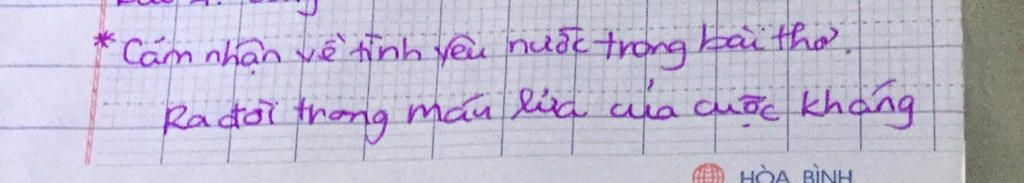 * Cảm nhận về tình yêu nước trong bài thơ.
Ra đời trong máu lửa của cuộc kháng
HÒA BÌNH